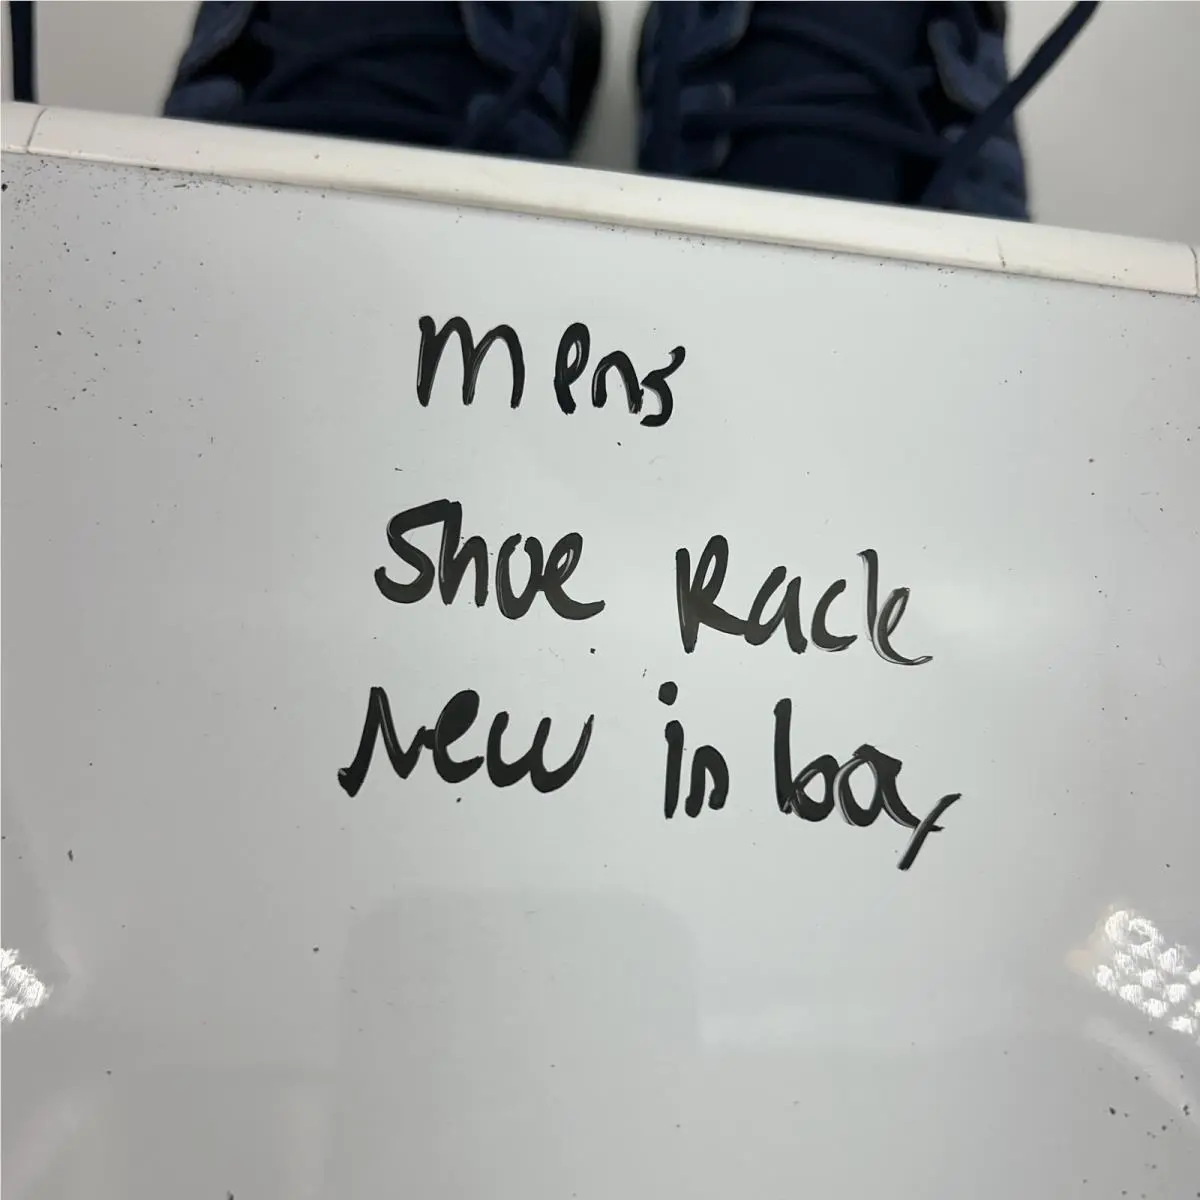 mens
Shoe Rack
New in box